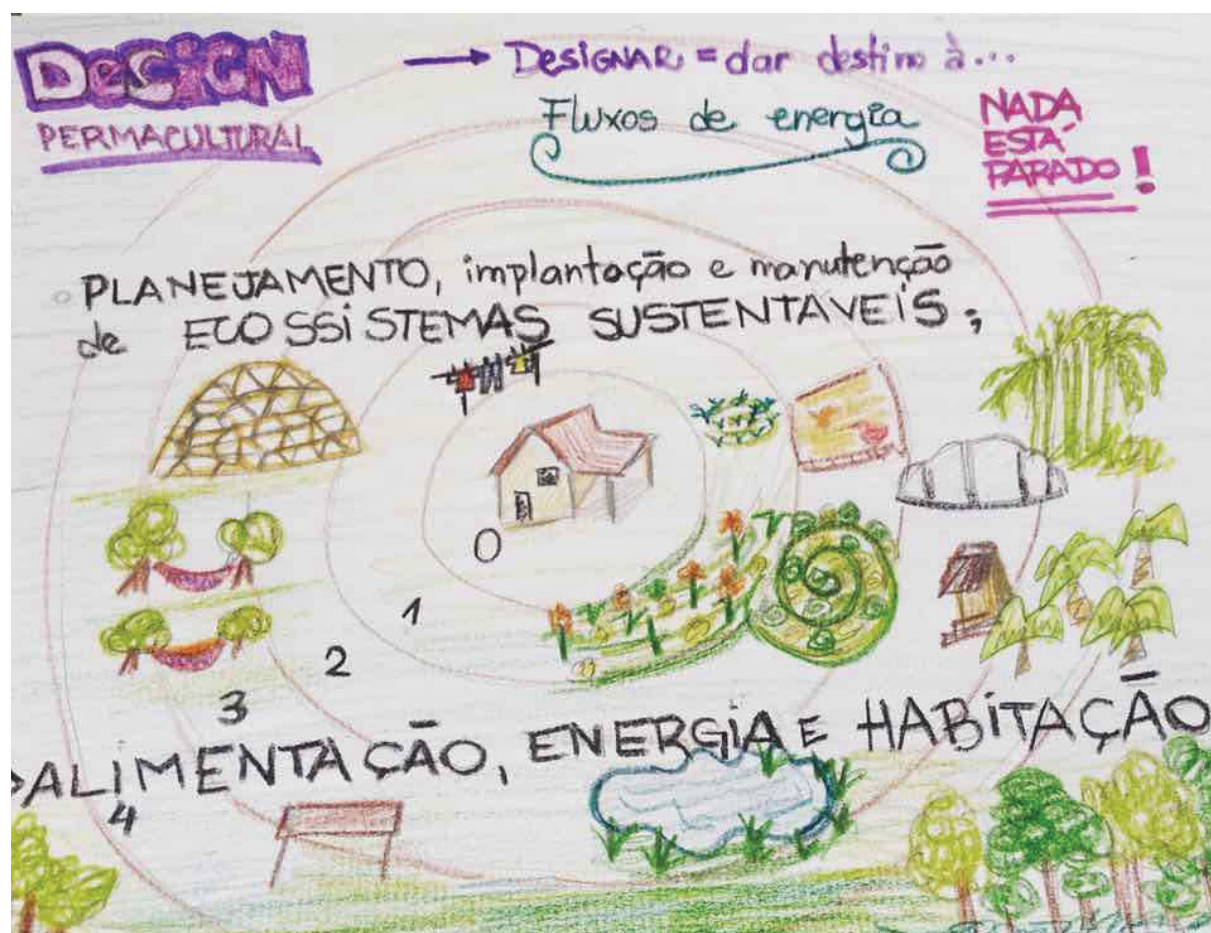 DESIGN
PERMACULTURAL
→ DESIGNAR = dar destino à...
Fluxos de energia
NADA
ESTÁ
PARADO!
PLANEJAMENTO, implantação e manutenção
de ECOSSISTEMAS SUSTENTÁVEIS;
0
1
2
3
ALIMENTAÇÃO, ENERGIA E HABITAÇÃO
4